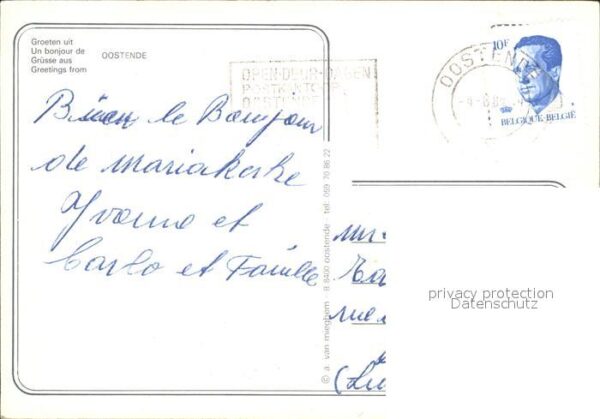 Groeten uit
Un bonjour de
Grüsse aus
Greetings from
OOSTENDE
OPEN-DEUR-DAGEN
OOSTENDE
OOSTENDE
10F
BELGIQUE-BELGIË
Bien le Bonjour
de mariakerke
Yvonne et
Carlo et Famille
© a. van mieghem B 8400 oostende tel. 059 70 86 22
privacy protection
Datenschutz